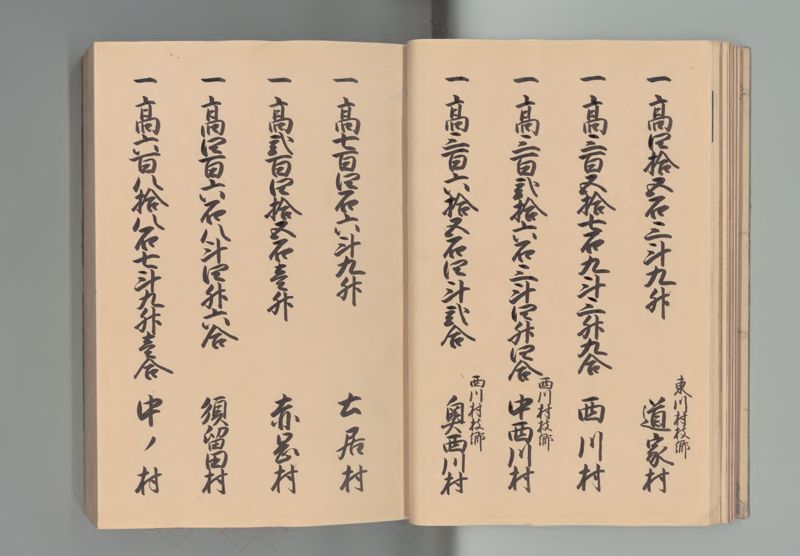 一高四拾五石三斗九升
東川村枝郷
道家村
一高三百五拾七石九斗三升九合
西川村
一高三百弐拾六石三斗四升四合
西川村枝郷
中西川村
一高三百六拾五石四斗弐合
西川村枝郷
奥西川村
一高七百四石六斗九升
土居村
一高弐百四拾五石壱升
赤岡村
一高四百六石八斗四升六合
須留田村
一高六百八拾八石七斗九升壱合
中ノ村